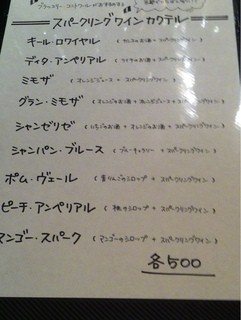 スパークリングワインカクテル
キール・ロワイヤル (カシスのお酒 + スパークリングワイン)
ディタ・アンペリアル (ライチのお酒 + スパークリングワイン)
ミモザ (オレンジジュース + スパークリングワイン)
グラン・ミモザ (オレンジのお酒 + オレンジジュース + スパークリングワイン)
シャンゼリゼ (いちごのお酒 + オレンジのお酒 + スパークリングワイン)
シャンパン・ブルース (ブルーキュラソー + スパークリングワイン)
ポム・ヴェール (青りんごのシロップ + スパークリングワイン)
ピーチ・アンペリアル (桃のシロップ + スパークリングワイン)
マンゴー・スパーク (マンゴーのシロップ + スパークリングワイン)
各500